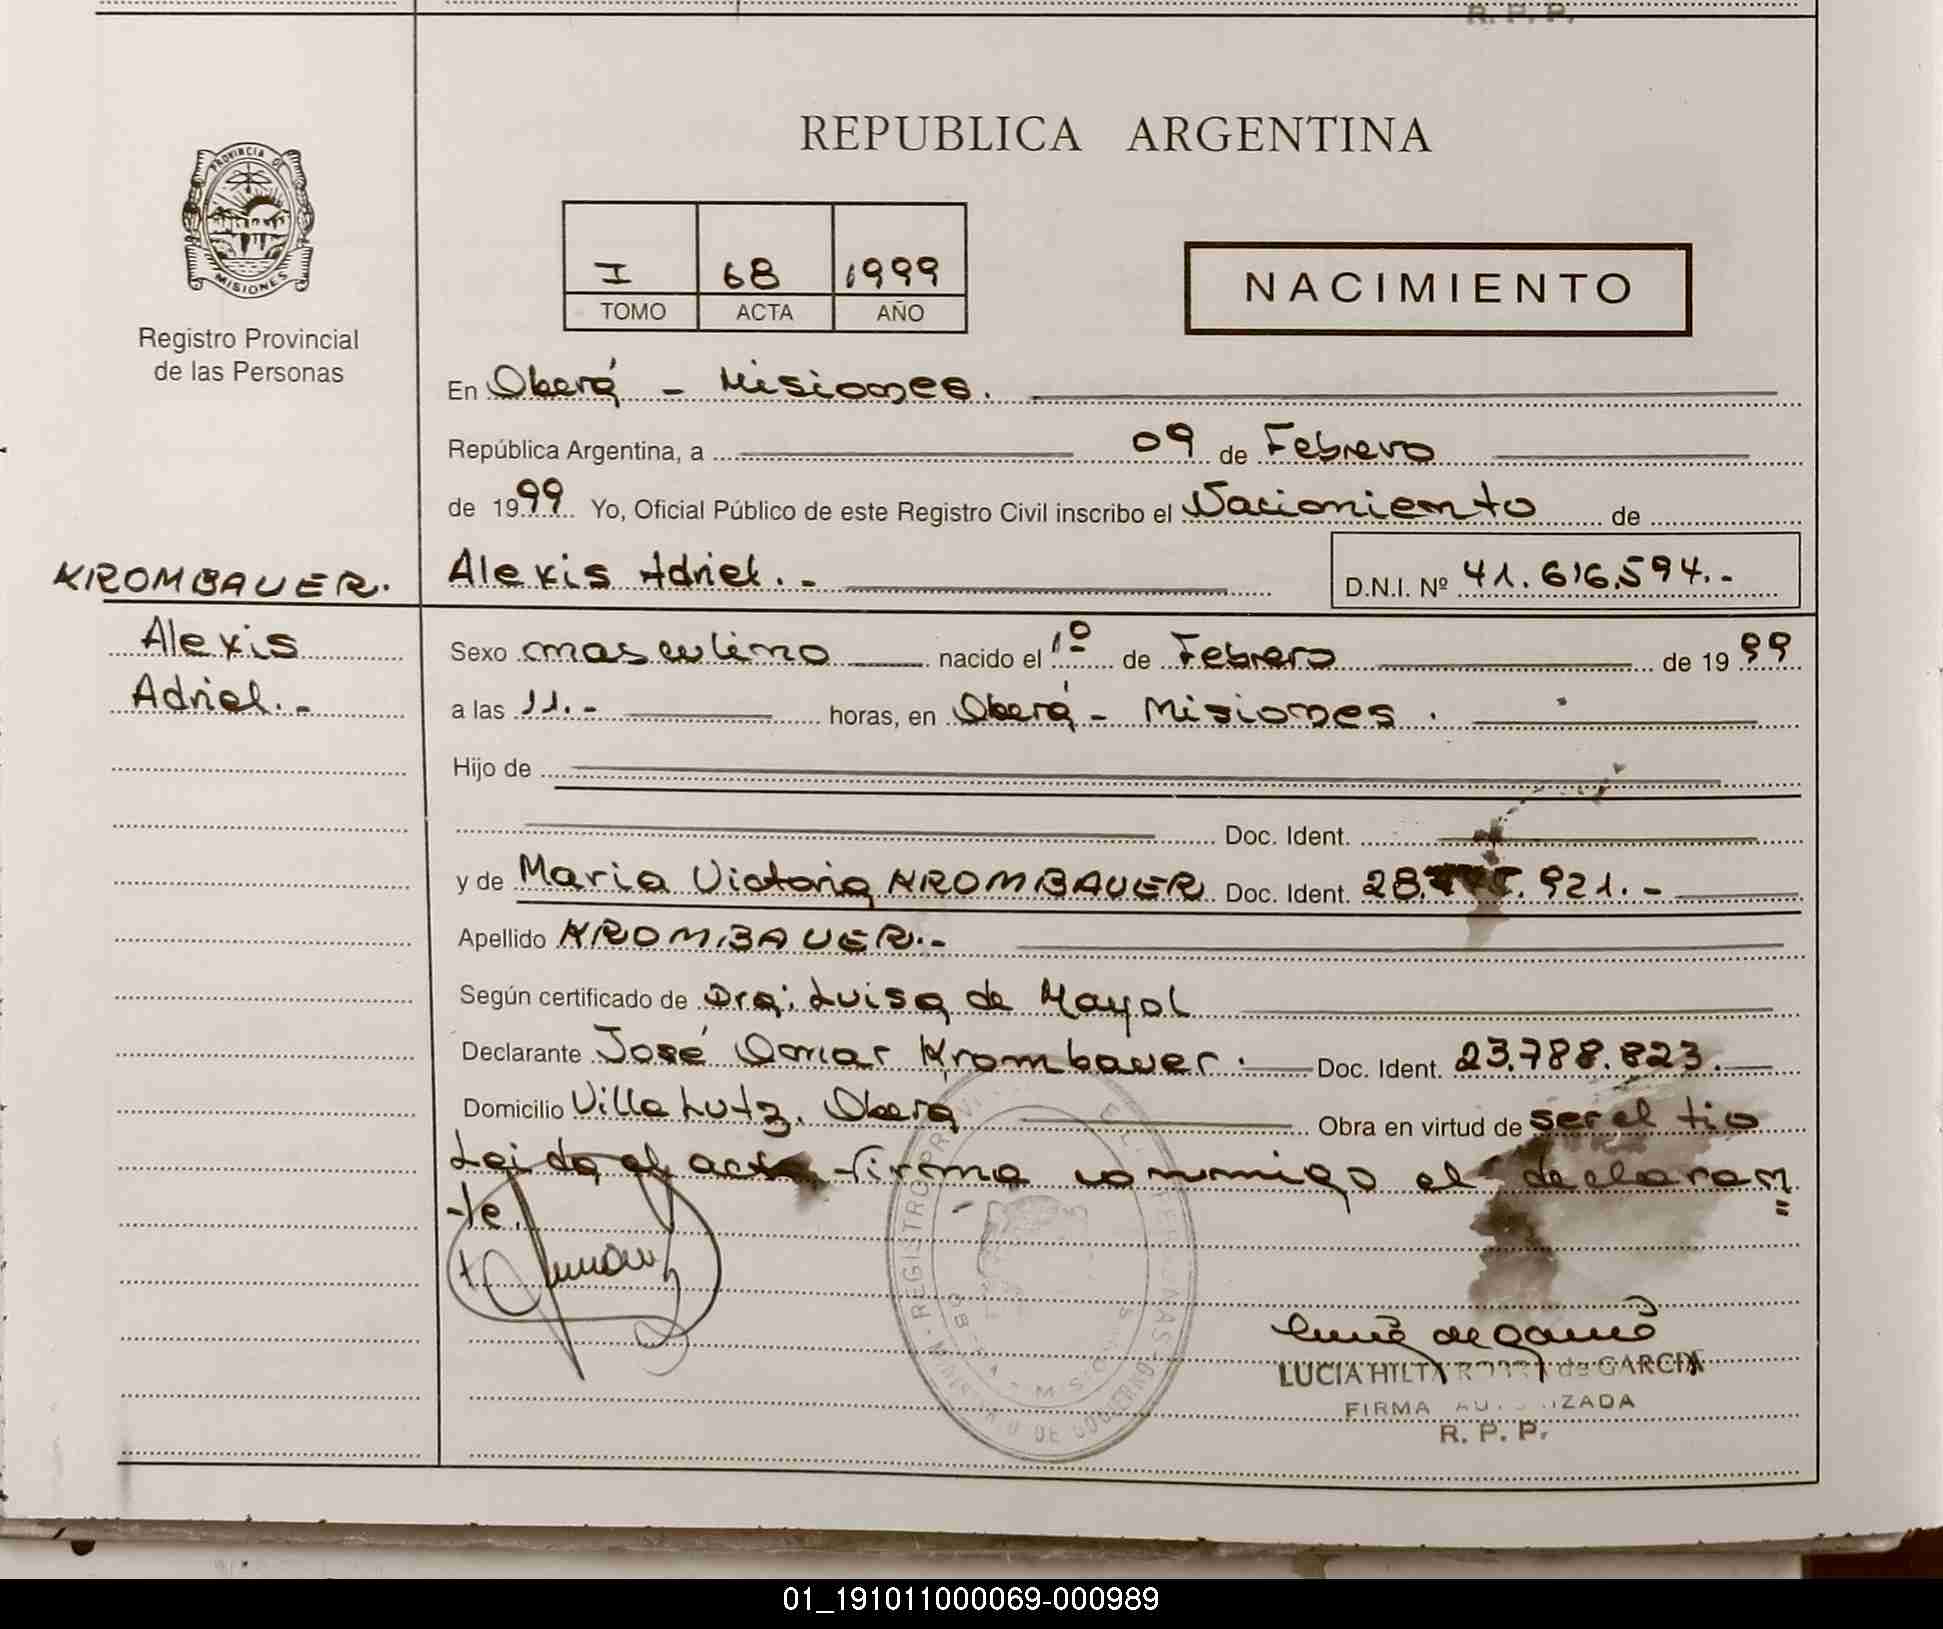 R. P. P.
REPUBLICA ARGENTINA
PROVINCIA DE
MISIONES
Registro Provincial
de las Personas
I 68 1999
TOMO ACTA AÑO
NACIMIENTO
En Oberá - Misiones.
República Argentina, a 09 de Febrero
de 1999 Yo, Oficial Público de este Registro Civil inscribo el Nacimiento de
KROMBAUER. Alexis Adriel.- D.N.I. Nº 41.616.594.-
Alexis
Adriel.-
Sexo masculino nacido el 1º de Febrero de 1999
a las 11.- horas, en Oberá - Misiones.
Hijo de
Doc. Ident.
y de Maria Victoria KROMBAUER Doc. Ident. 28. .921.-
Apellido KROMBAUER.-
Según certificado de Dra; Luisa de Mayol
Declarante José Omar Krombauer. Doc. Ident. 23.788.823.
Domicilio Villa Lutz. Oberá Obra en virtud de ser el tio
Leida el acta firma conmigo el declaran=
te.
LUCIA HILTA de GARCIA
FIRMA AUTORIZADA
R. P. P.
01_191011000069-000989